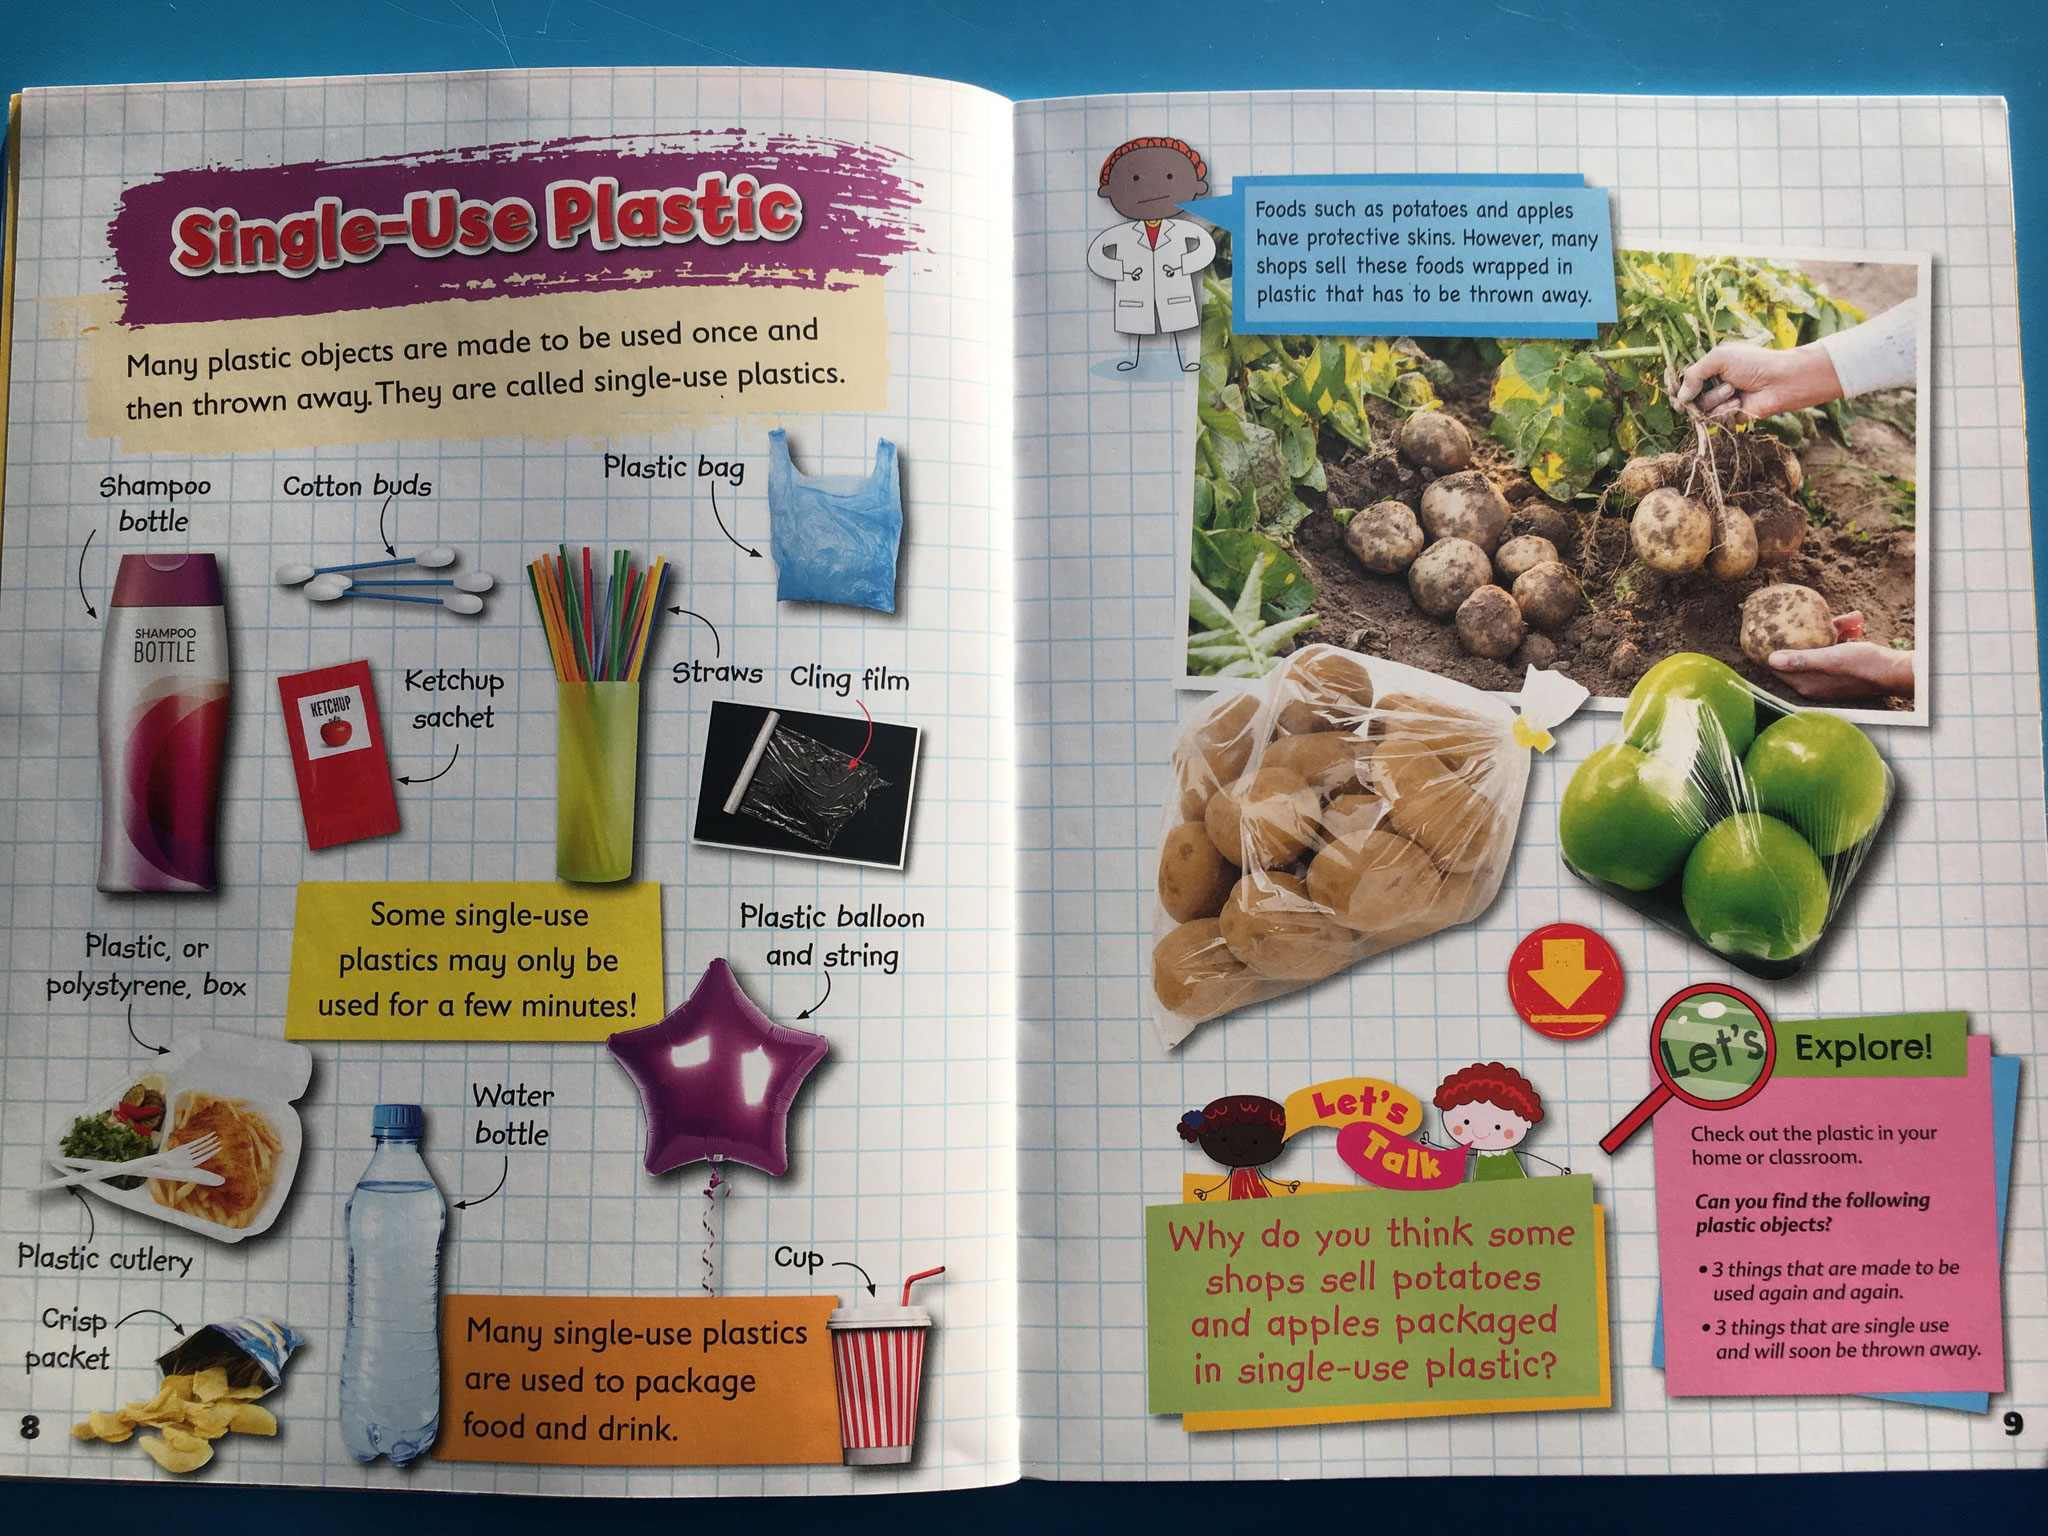 Single-Use Plastic
Many plastic objects are made to be used once and
then thrown away. They are called single-use plastics.
Shampoo
bottle
Cotton buds
Plastic bag
SHAMPOO
BOTTLE
KETCHUP
Ketchup
sachet
Straws
Cling film
Some single-use
plastics may only be
used for a few minutes!
Plastic balloon
and string
Plastic, or
polystyrene, box
Water
bottle
Plastic cutlery
Cup
Crisp
packet
Many single-use plastics
are used to package
food and drink.
8
Foods such as potatoes and apples
have protective skins. However, many
shops sell these foods wrapped in
plastic that has to be thrown away.
Let's
Talk
Why do you think some
shops sell potatoes
and apples packaged
in single-use plastic?
Let's Explore!
Check out the plastic in your
home or classroom.
Can you find the following
plastic objects?
• 3 things that are made to be
used again and again.
• 3 things that are single use
and will soon be thrown away.
9